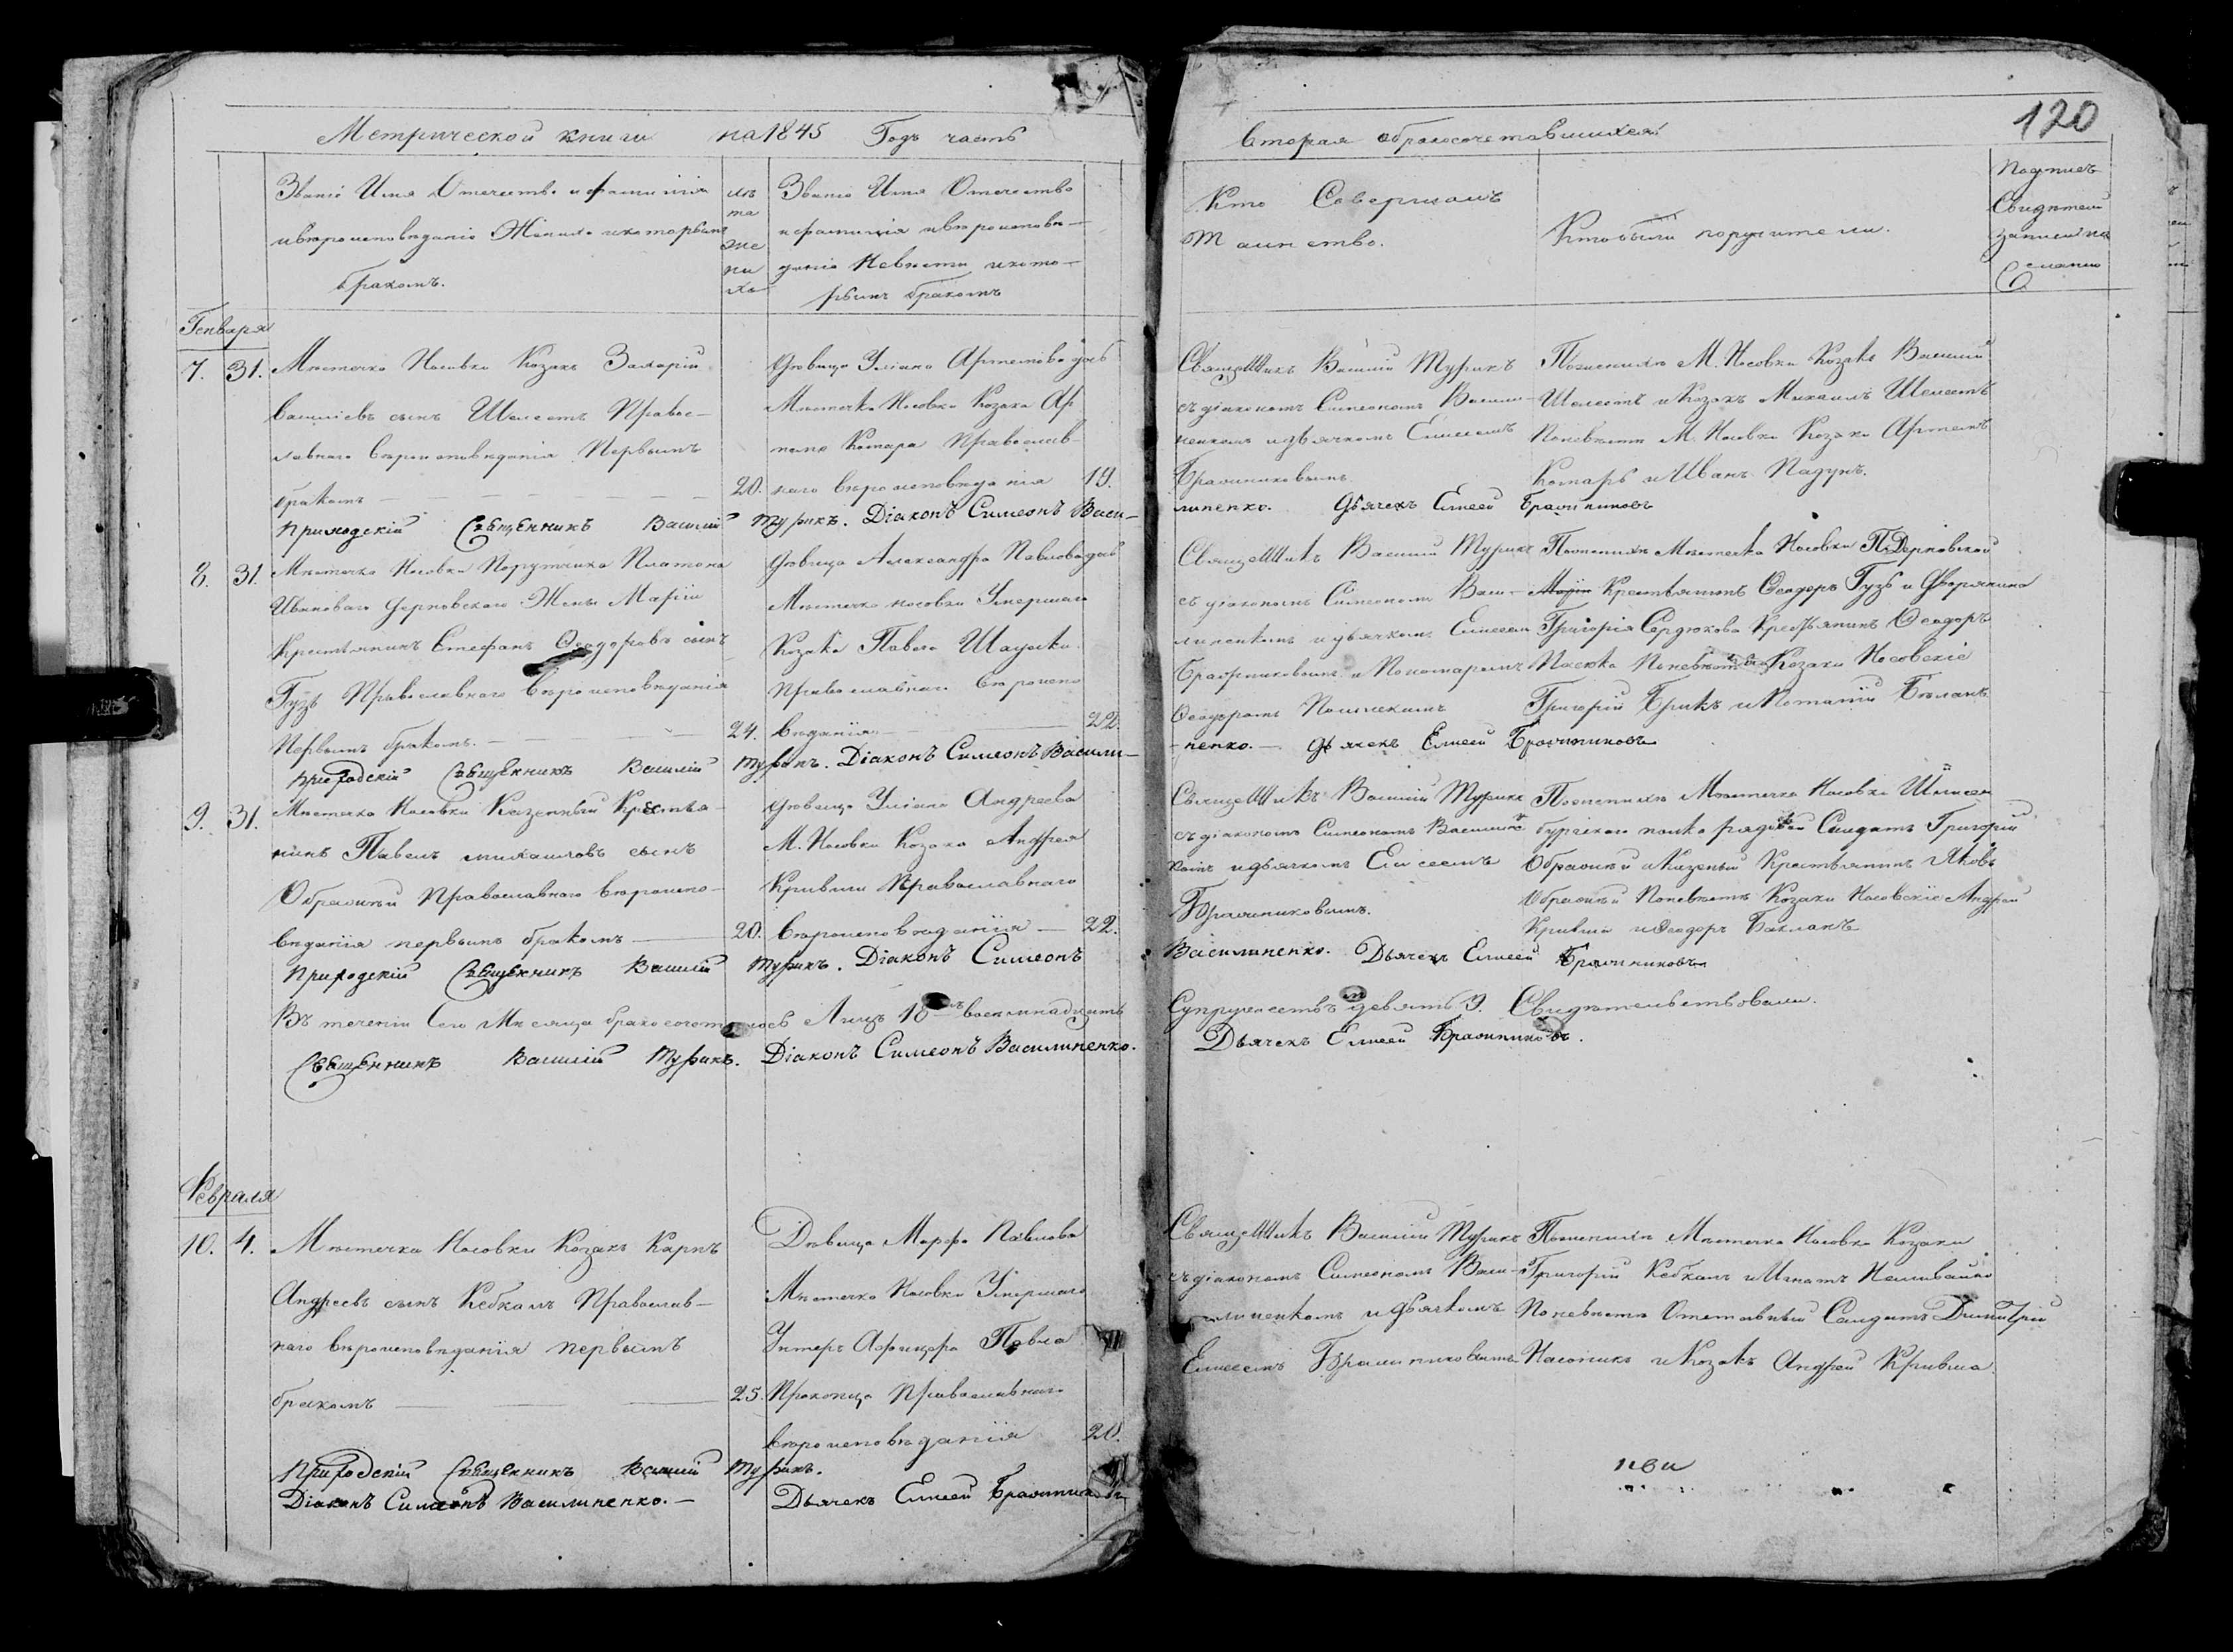 Метрической книги на 1845 Годъ часть
Вторая обракосочетавшихся.
120
Званіе Имя Отечество и фамилія
ивероисповѣданіе Жениха икоторымъ
бракомъ.
лѣ
та
же
ни
ха
Званіе Имя Отечество
ифамилія ивероисповѣ—
даніе Невѣсты икото—
рымъ бракомъ
Кто Совершалъ
Таинство.
Ктобыли поручители.
Подпись
Свидѣтелей
записи по
Генваря
7. 31. Мѣстечка Носовки Козакъ Захарій
Василіевъ сынъ Шелестъ Правос—
лавнаго вѣроисповѣданія Первымъ
бракомъ 20.
Дѣвица Уліана Артемова дочь
Мѣстечка Носовки Козака Ар
Комара Православ—
наго вѣроисповѣданія 19.
Священникъ Василій Турикъ
съ діакономъ Симеономъ Васили—
ненкомъ идьячкомъ Елисеемъ
Пожениху М. Носовки Козакъ Василій
Шелестъ и Козакъ Михаилъ Шелестъ
Поневѣсте М. Носовки Козаки Артемъ
Комаръ и Иванъ Падунъ.
Приходскій Священникъ Василій Турикъ. Діаконъ Симеонъ Васи—
линенко. Дьячекъ Елисей
8. 31. Мѣстечка Носовки Порутчика Платона
Иванова Дерновскаго Жены Маріи
Крестьянинъ Стефанъ Ѳеодоровъ сынъ
Гузь Православнаго вѣроисповѣданія
Первымъ бракомъ. 24.
Дѣвица Александра Павлова дочь
Мѣстечка носовки Умершаго
Козака Павла
Православнаго вѣроиспо
вѣданія. 22.
Священникъ Василій Турикъ
съ діакономъ Симеономъ Васи—
линенкомъ идьячкомъ Елисеем
и Пономаремъ
Ѳеодоромъ
Пожениху Мѣстечка Носовки П. Дерновской
Маріи Крестьянинъ Ѳеодоръ Гузь и Дворянина
Григорія Сердюкова Крестьянинъ Ѳеодоръ
Поневѣсте Козаки Носовскіе
Григорій Брикъ и Потапій Бакланъ
Приходскій Священникъ Василій Турикъ. Діаконъ Симеонъ Васили—
ненко.— Дьячекъ Елисей
9. 31. Мѣстечка Носовки Казенный Крестья—
нинъ Павелъ михаиловъ сынъ
Православнаго вѣроиспо—
вѣданія первымъ бракомъ 20.
Дѣвица Уліана Андреева
М. Носовки Козака Андрея
Кривши Православнаго
вѣроисповѣданія — 22.
Священникъ Василій Турикъ
съ діакономъ Симеономъ
идьячкомъ Елисеемъ
Пожениху Мѣстечка Носовки
бургскаго полка рядовой Салдатъ Григорій
иКазеный Крестьянинъ Яковъ
Поневѣстѣ Козаки Носовскіе Андрей
Кривша иѲеодоръ Бакланъ
Приходскій Священникъ Василій Турикъ. Діаконъ Симеонъ
Василиненко. Дьячекъ Елисей
Въ теченіи Сего Мѣсяца бракосочеталось Лицъ 18 восемнадцать
Супружествъ девять 9. Свидѣтельствовали.
Священникъ Василій Турикъ. Діаконъ Симеонъ Василиненко.
Дьячекъ Елисей
Февраля
10. 4. Мѣстечка Носовки Козакъ Карпъ
Андреевъ сынъ Кебкалъ Православ—
наго вѣроисповѣданія первымъ
бракомъ 25.
Дѣвица Марфа Павлова
Мѣстечка Носовки Умершаго
Унтеръ Афицера Павла
Прокопца Православнаго
вѣроисповѣданія 20.
Священникъ Василій Турикъ
съ діакономъ Симеономъ Васи—
линенкомъ идьячкомъ
Елисеемъ
Пожениху Мѣстечка Носовки Козаки
Григорій Кебкалъ иИгнатъ
Поневѣсте Отставный Салдатъ Димитрій
и Козакъ Андрей Кривша.
Приходскій Священникъ Василій Турикъ.
Діаконъ Симеонъ Василиненко.—
Дьячекъ Елисей